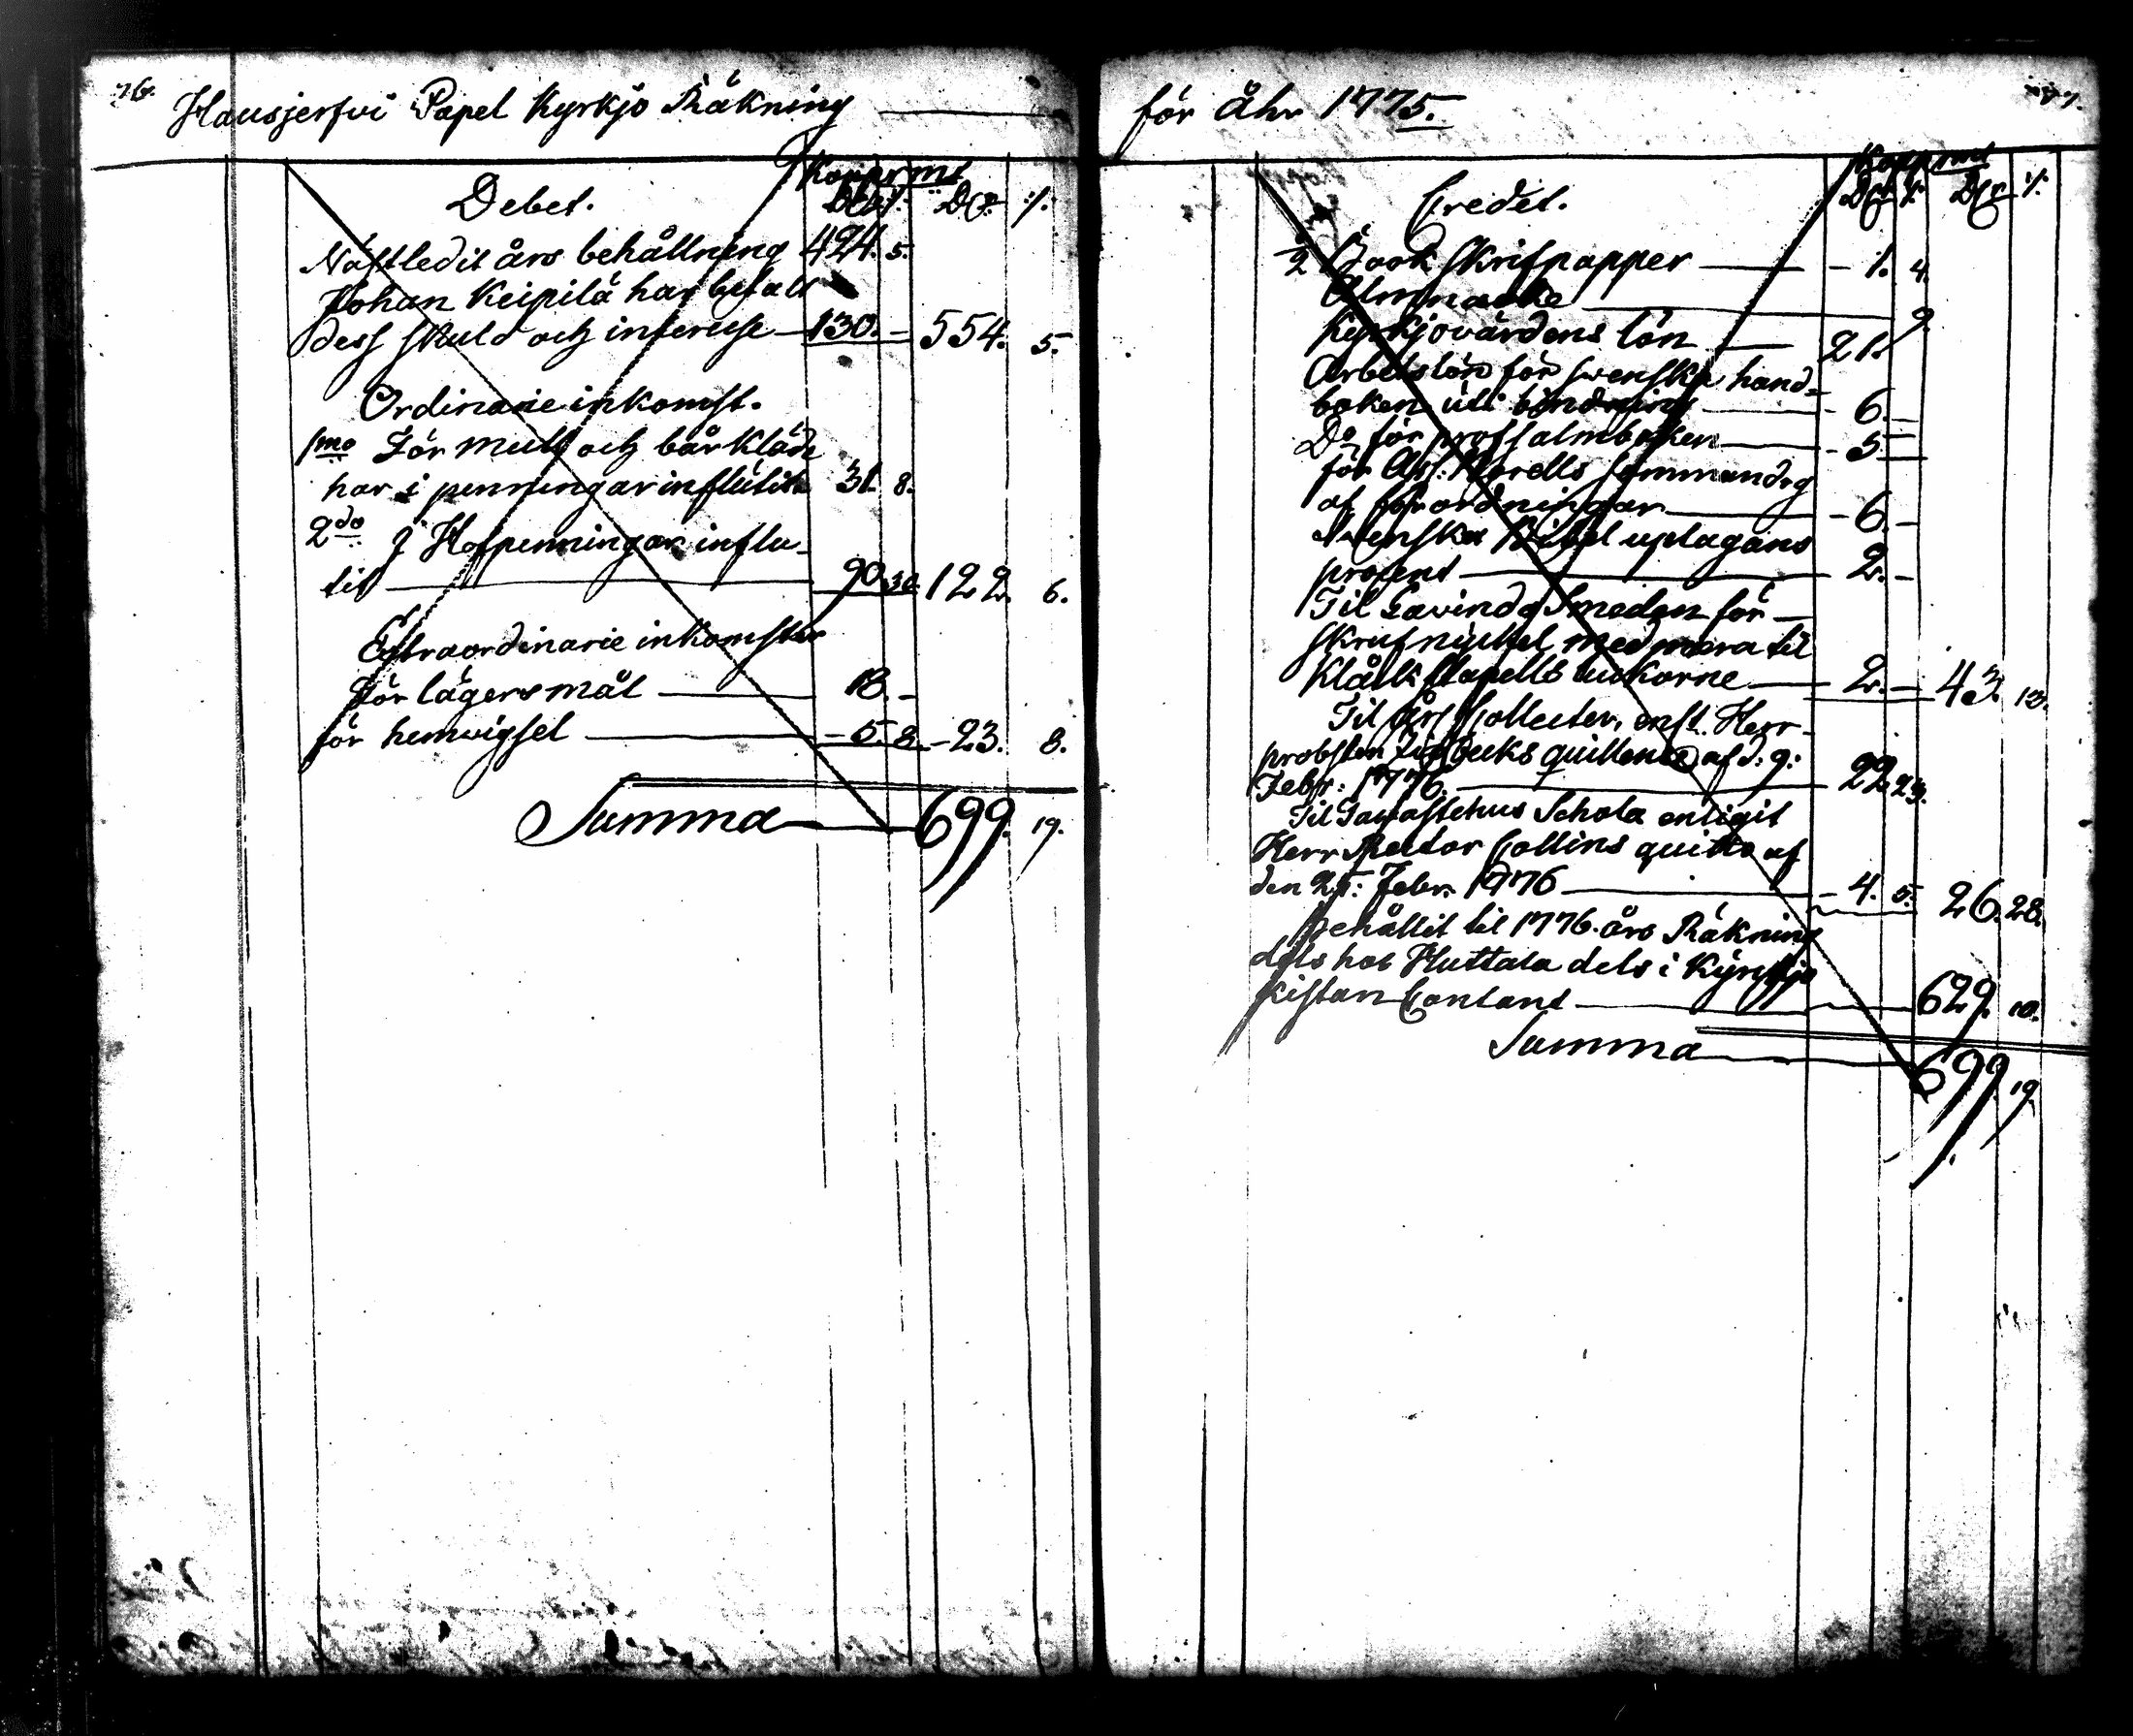 76.
Hausjerfvi Capel Kyrkjo Räkning
Kopp:r mt
Debet. Dlr ./. Dlr ./.
Nästledit års behållning 424. 5.
Johan Keipilä har betalt
dess skuld och interesse 130. – 554. 5.
Ordinarie inkomst.
1mo För mull och bårkläde
har i penningar influtit 31. 8.
2do I Hofpenningar influ-
tit 90. 30. 122. 6.
Extraordinarie inkomster
för lägersmål 18. –
för hemvigsel – 5. 8. – 23. 8.
Summa 699. 19.
77.
för åhr 1775.
Kopp:r mt
Credit. Dlr ./. Dlr ./.
½ Book skrifpapper – 1. 4.
Almnacke 9.
Kyrkjovärdens lön 21.
Arbetslön för swenska hand=
boken uti bindning – 6. –
Do för psalmboken – 5. –
för Ass: sammandrg
af förordningar – 6. –
Swenska Bibel uplagans
procent 2. –
Til Smeden för –
skrufnyckel med mera til
Klåckstapells luckorne 2. – 43. 13.
Til års Collecter, enl. Herr
probsten quittence af d: 9:
Febr: 1776. 22. 23.
Til Tawastehus Schola enligit
Herr Rector Collins quitto af
den 25: Febr. 1776 – 4. 5. 26. 28.
behållit til 1776. års Räkning
dels hos Huttala dels i Kyrkjo
kistan Contant 629. 10.
Summa 699. 19.